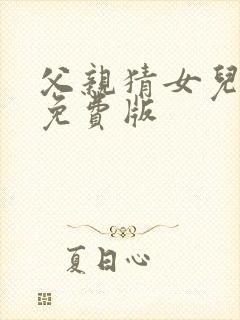 父親猜女兒
免費版
夏日心